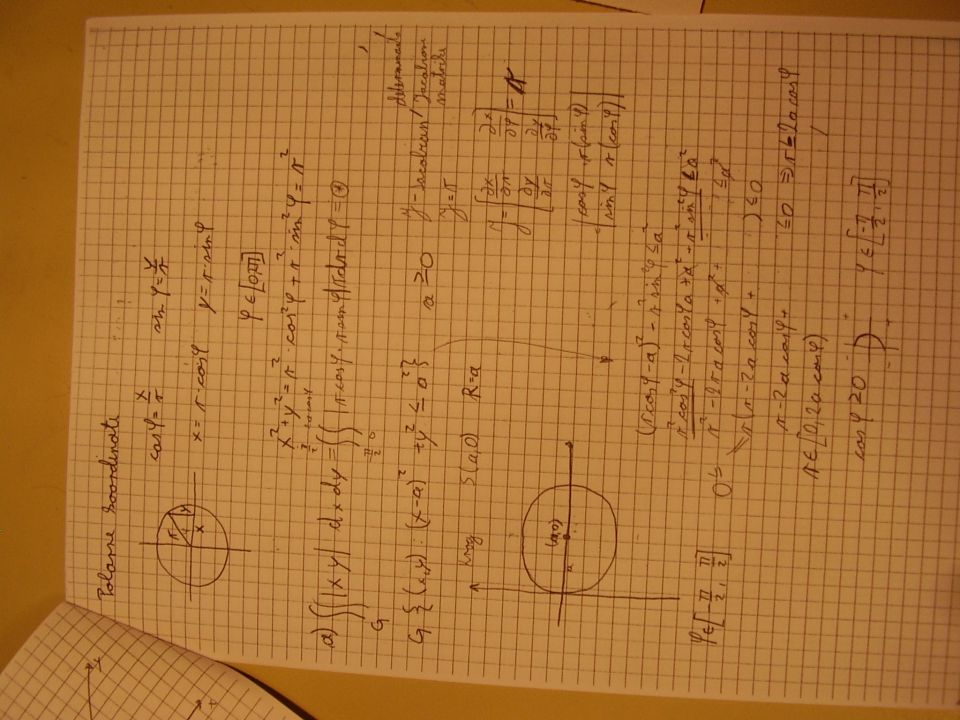 Polarne koordinate
cos φ = x/r   sin φ = y/r
x = r · cos φ   y = r · sin φ
φ ∈ [0, 2π]
x² + y² = r² · cos²φ + r² · sin²φ = r²
a) ∬ |xy| dx dy = ∫∫ |r cos φ · r sin φ| r dr dφ = (*)
G   -π/2   0   π/2   2a cos φ
G {(x,y) : (x-a)² + y² ≤ a²}   a ≥ 0
krug   S(a,0)   R = a
J - Jacobian / determinanta Jacobian matrike
J = r
J = | ∂x/∂r   ∂x/∂φ |
| ∂y/∂r   ∂y/∂φ | = r
| cos φ   -r(sin φ) |
| sin φ   r(cos φ) |
r y x
(a,0)
a
(r cos φ - a)² - r² sin²φ ≤ a²
r² cos²φ - 2r cos φ a + a² + r² sin²φ ≤ a²
r² - 2r a cos φ + a² + ≤ a²
0 ≤ r(r - 2a cos φ + ) ≤ 0
r - 2a cos φ + ≤ 0 ⇒ r ≤ 2a cos φ
r ∈ [0, 2a cos φ]
cos φ ≥ 0   φ ∈ [-π/2, π/2]
φ ∈ [-π/2, π/2]